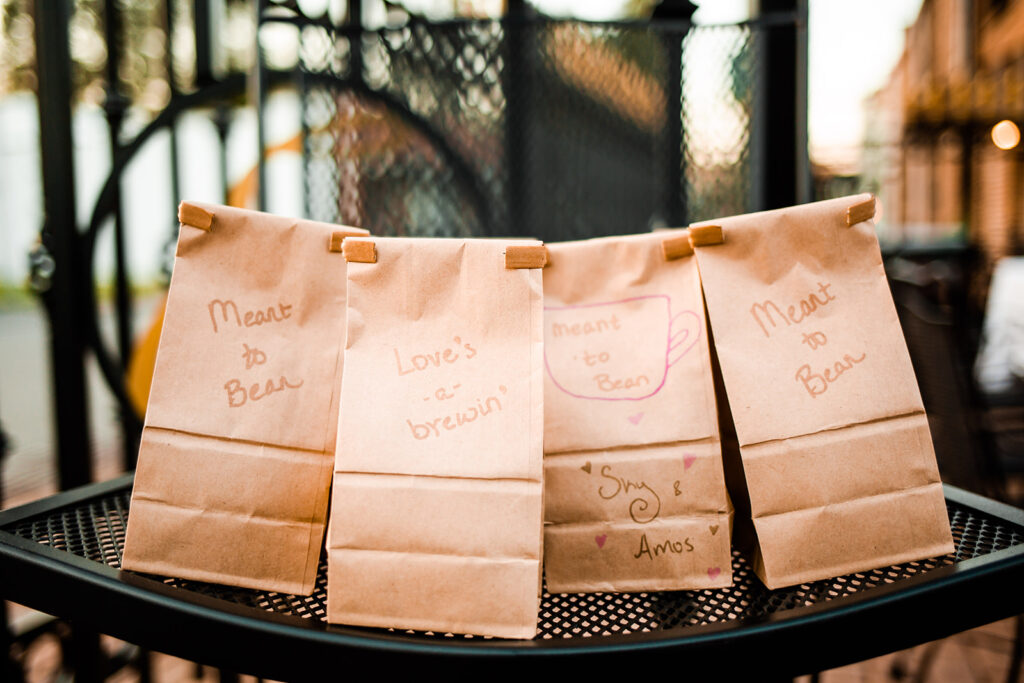 Meant
to
Bean
Love's
-a-
brewin'
meant
to
Bean
Shy &
Amos
Meant
to
Bean